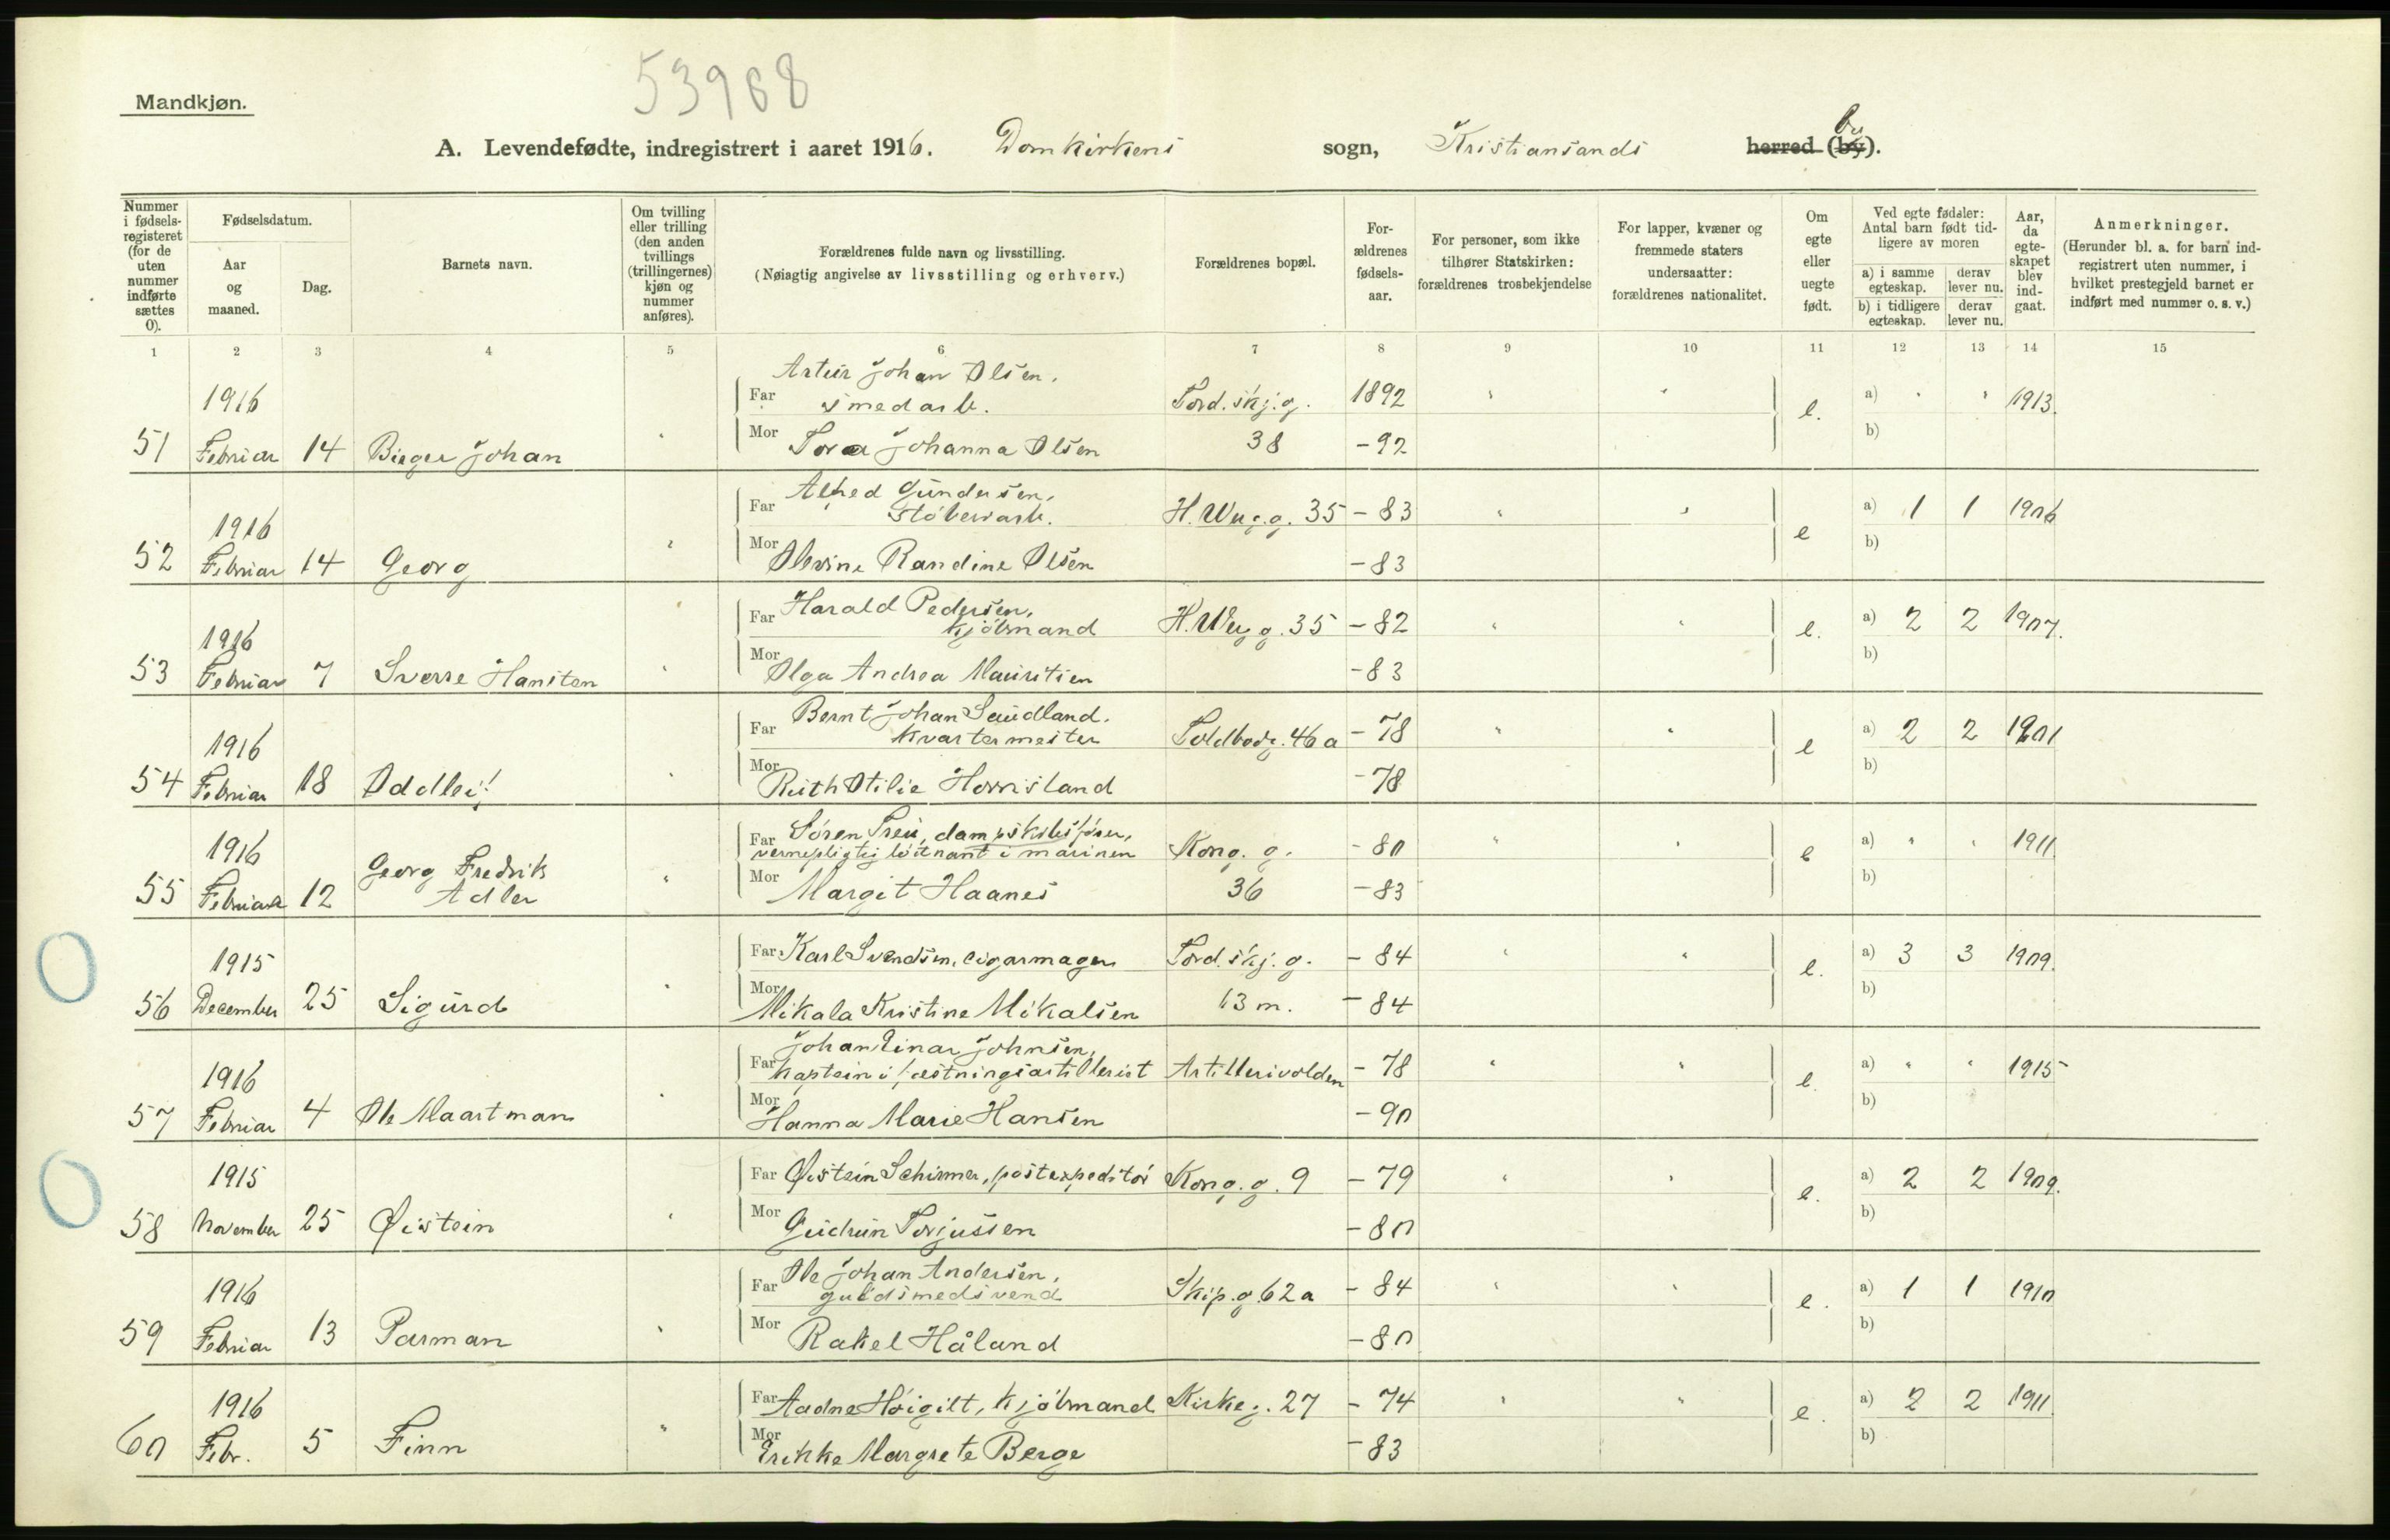 53968
Mandkjøn.
A. Levendefødte, indregistrert i aaret 1916. Domkirkens sogn, Kristiansands herred (by). by
Nummer i fødselsregisteret (for de uten nummer indførte sættes 0).
Fødselsdatum.
Aar og maaned.
Dag.
Barnets navn.
Om tvilling eller trilling (den anden tvillings (trillingernes) kjøn og nummer anføres).
Forældrenes fulde navn og livsstilling.
(Nøiagtig angivelse av livsstilling og erhverv.)
Forældrenes bopæl.
Forældrenes fødselsaar.
For personer, som ikke tilhører Statskirken: forældrenes trosbekjendelse
For lapper, kvæner og fremmede staters undersaatter: forældrenes nationalitet.
Om egte eller uegte født.
Ved egte fødsler: Antal barn født tidligere av moren
a) i samme egteskap. derav lever nu.
b) i tidligere egteskap. derav lever nu.
Aar, da egteskapet blev indgaat.
Anmerkninger.
(Herunder bl. a. for barn indregistrert uten nummer, i hvilket prestegjeld barnet er indført med nummer o. s. v.)
1 2 3 4 5 6 7 8 9 10 11 12 13 14 15
Artur Johan Olsen.
1916 Far smedarb. Tord.skj.g. 1892 " " e. a) " " 1913.
51 Februar 14 Birger Johan " Mor Tora Johanna Olsen 38 -92 b)
Alfred Gundersen,
1916 Far støberiarb. H. Weg.g. 35 - 83 " " e a) 1 1 1906
52 Februar 14 Georg " Mor Olevine Randine Olsen -83 b)
Far Harald Pedersen,
1916 kjøbmand H. Weg.g. 35 - 82 " " e. a) 2 2 1907.
53 Februar 7 Sverre Hansten " Mor Olga Andrea Mauritsen -83 b)
Bernt Johan Saudland.
1916 Far kvartermester Toldbodg. 46 a - 78 " " e a) 2 2 1901
54 Februar 18 Oddleif " Mor Ruth Otilie Horrisland -78 b)
Søren Treu, dampskibsfører,
1916 Far vernepligtig løitnant i marinen Kong. g. - 80 " " e a) " " 1911
55 Februar 12 Georg Fredrik Adler " Mor Margit Haanes 36 -83 b)
1915 Far Karl Svendsen, cigarmager Tord.skj.g. - 84 " " e. a) 3 3 1909.
56 December 25 Sigurd " Mor Mikala Kristine Mikalsen 13 m. - 84 b)
Johan Einar Johnsen,
1916 Far kaptein i fæstningsartilleriet Artillerivolden - 78 " " e. a) " " 1915
57 Februar 4 Ole Maartman " Mor Hanna Marie Hansen -90 b)
1915 Far Øistein Schirmer, postexpeditør Kong. g. 9 - 79 " " e. a) 2 2 1909.
58 November 25 Øistein " Mor Gudrun Torjussen -80 b)
Ole Johan Andersen,
1916 Far guldsmedsvend Skip.g. 62 a - 84 " " e. a) 1 1 1910
59 Februar 13 Parman " Mor Rakel Håland -80 b)
1916 Far Aadne Høigilt, kjøbmand Kirkeg. 27 - 74 " " e. a) 2 2 1911
60 Febr. 5 Finn " Mor Erikke Margrete Berge -83 b)